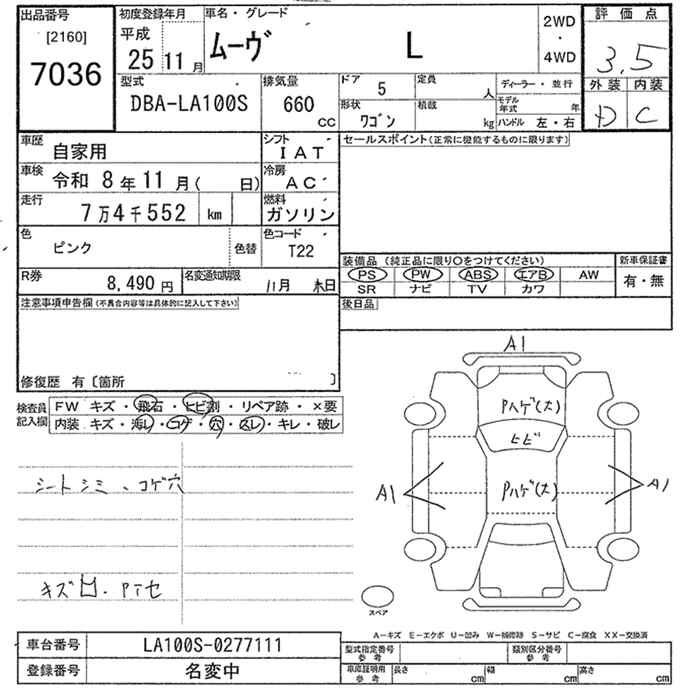 出品番号
[2160]
7036
初度登録年月
平成
25 11月
車名・グレード
ムーヴ L
2WD
・
4WD
評価点
3.5
外装 内装
D C
型式
DBA-LA100S
排気量
660
CC
ドア 5
定員 人
形状
ワゴン
積載 kg
ディーラー・並行
モデル年式 年
ハンドル 左・右
車歴
自家用
シフト
IAT
車検
令和 8年11月( 日)
冷房
AC
走行
7万4千552 km
燃料
ガソリン
色
ピンク
色替
色コード
T22
R券
8,490円
名変通知期限
11月 末日
セールスポイント(正常に機能するものに限ります)
装備品 (純正品に限り○をつけてください)
PS PW ABS エアB AW
SR ナビ TV カワ
新車保証書
有・無
後日品
注意事項申告欄(不具合内容等は具体的に記入して下さい)
修復歴 有〔箇所 〕
検査員
記入欄
FW キズ・飛石・ヒビ割・リペア跡・×要
内装 キズ・汚レ・コゲ・穴・スレ・キレ・破レ
シートシミ、コゲ穴
A1
Pハゲ(大)
ヒビ
A1
Pハゲ(大)
A1
スペア
A−キズ E−エクボ U−凹み W−補修跡 S−サビ C−腐食 XX−交換済
車台番号
LA100S-0277111
登録番号
名変中
型式指定番号
参考
類別区分番号
参考
車庫証明用
参考
長さ cm
幅 cm
高さ cm